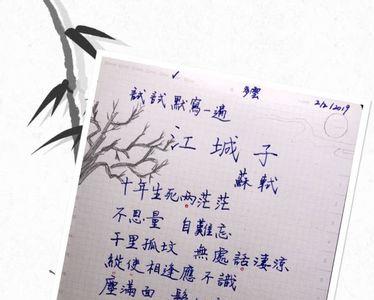 多雲
2/2/2019
試試默寫一遍
江城子
蘇軾
十年生死兩茫茫
不思量 自難忘
千里孤墳 無處話淒涼
縱使相逢應不識
塵滿面